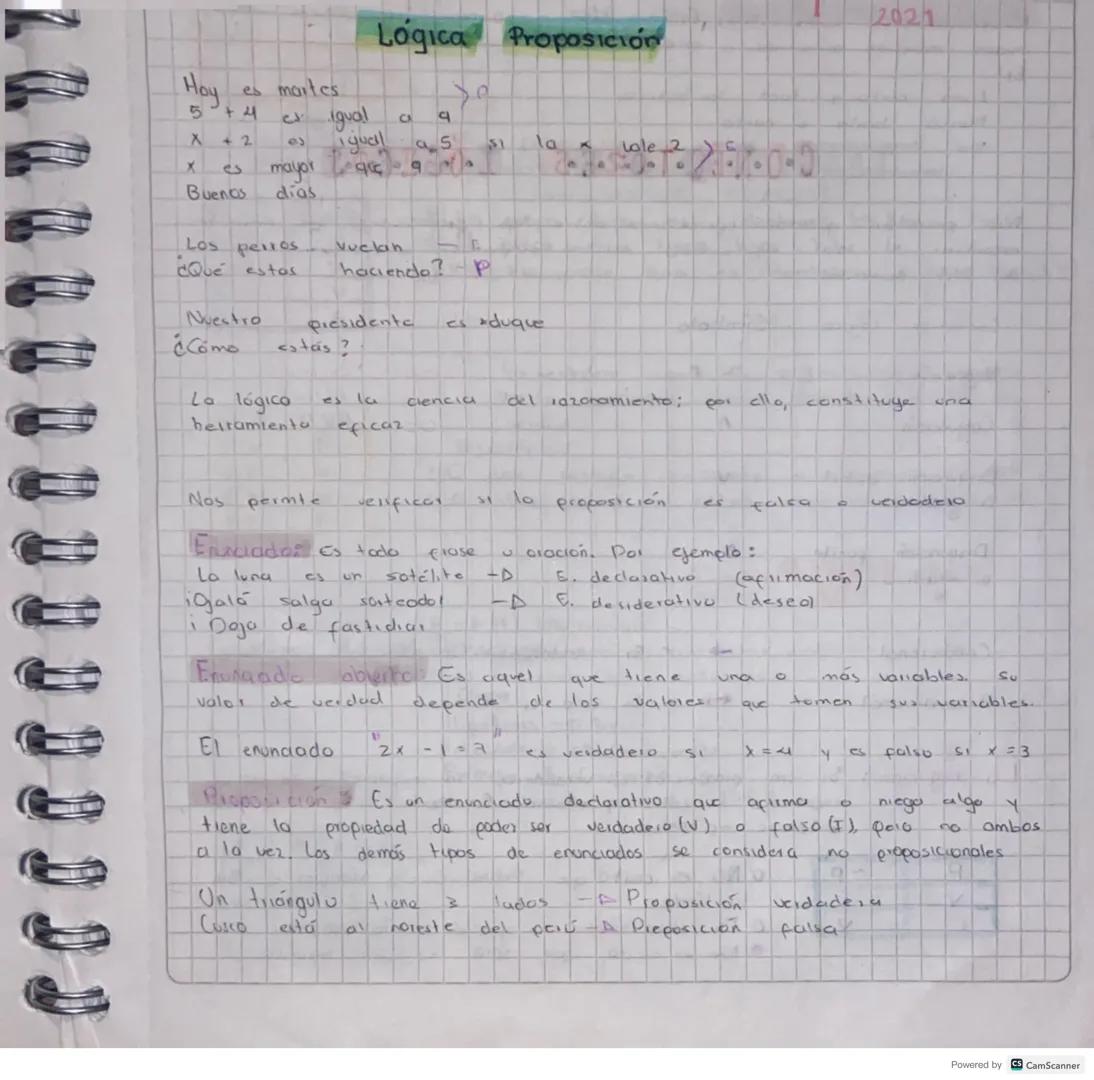 2021
Lógica Proposición
Hoy es martes
5 + 4 es igual a 9
x + 2 es igual a 5 si la x vale 2
x es mayor que 9
Buenos días
Los perros vuelan
¿Qué estas haciendo? P
Nuestro presidente es duque
¿Cómo estás?
La lógica es la ciencia del razonamiento; por ello, constituye una
herramienta eficaz
Nos permite verificar si la proposición es falsa o verdadera
Enunciado: Es toda frase u oración. Por ejemplo:
La luna es un satélite -D E. declarativo (afirmación)
¡Galá salga sorteado! -D E. desiderativo (deseo)
¡Deja de fastidiar
Enunciado abierto: Es aquel que tiene una o más variables. Su
valor de verdad depende de los valores que tomen sus variables.
El enunciado "2x - 1 = 7" es verdadero si x = 4 y es falso si x = 3
Proposición: Es un enunciado declarativo que afirma o niega algo y
tiene la propiedad de poder ser verdadero (V) o falso (F), pero no ambos
a la vez. Los demás tipos de enunciados se considera no proposicionales
Un triángulo tiene 3 lados -D Proposición verdadera
Cusco está al noreste del perú -D Preposición falsa
Powered by CS CamScanner